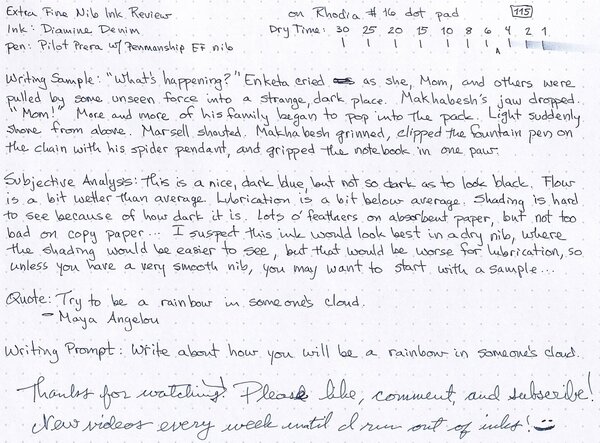 Extra Fine Nib Ink Review on Rhodia #16 dot pad 115
Ink: Diamine Denim Dry Time: 30 25 20 15 10 8 6 4 2 1
Pen: Pilot Prera w/ Penmanship EF nib
Writing Sample: "What's happening?" Enketa cried as she, Mom, and others were
pulled by some unseen force into a strange, dark place. Makhabesh's jaw dropped.
"Mom!" More and more of his family began to pop into the pack. Light suddenly
shone from above. Marsell shouted. Makhabesh grinned, clipped the fountain pen on
the chain with his spider pendant, and gripped the notebook in one paw.
Subjective Analysis: This is a nice, dark blue, but not so dark as to look black. Flow
is a bit wetter than average. Lubrication is a bit below average. Shading is hard
to see because of how dark it is. Lots o' feathers on absorbent paper, but not too
bad on copy paper... I suspect this ink would look best in a dry nib, where
the shading would be easier to see, but that would be worse for lubrication, so
unless you have a very smooth nib, you may want to start with a sample...
Quote: Try to be a rainbow in someone's cloud.
- Maya Angelou
Writing Prompt: Write about how you will be a rainbow in someone's cloud.
Thanks for watching! Please like, comment, and subscribe!
New videos every week until I run out of inks!